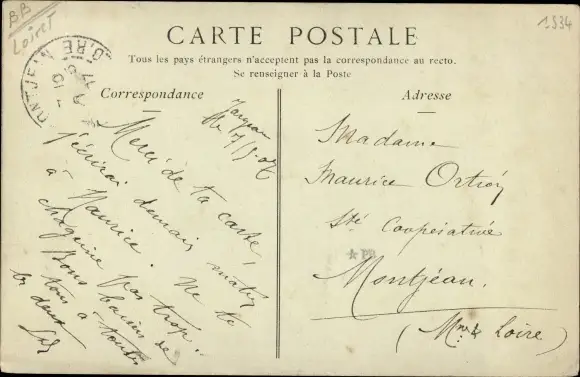 BB
Loiret
1934
CARTE POSTALE
Tous les pays étrangers n'acceptent pas la correspondance au recto.
Se renseigner à la Poste
Correspondance
Adresse
Jargeau
le 7/9-07
Merci de ta carte,
j'écrirai demain matin
à Maurice. Ne te
chagrine pas trop.
Bons baisers de
tous à toutes
les deux
Madame
Maurice
Sté Coopérative
PR
Montjéan.
(Mne & Loire)